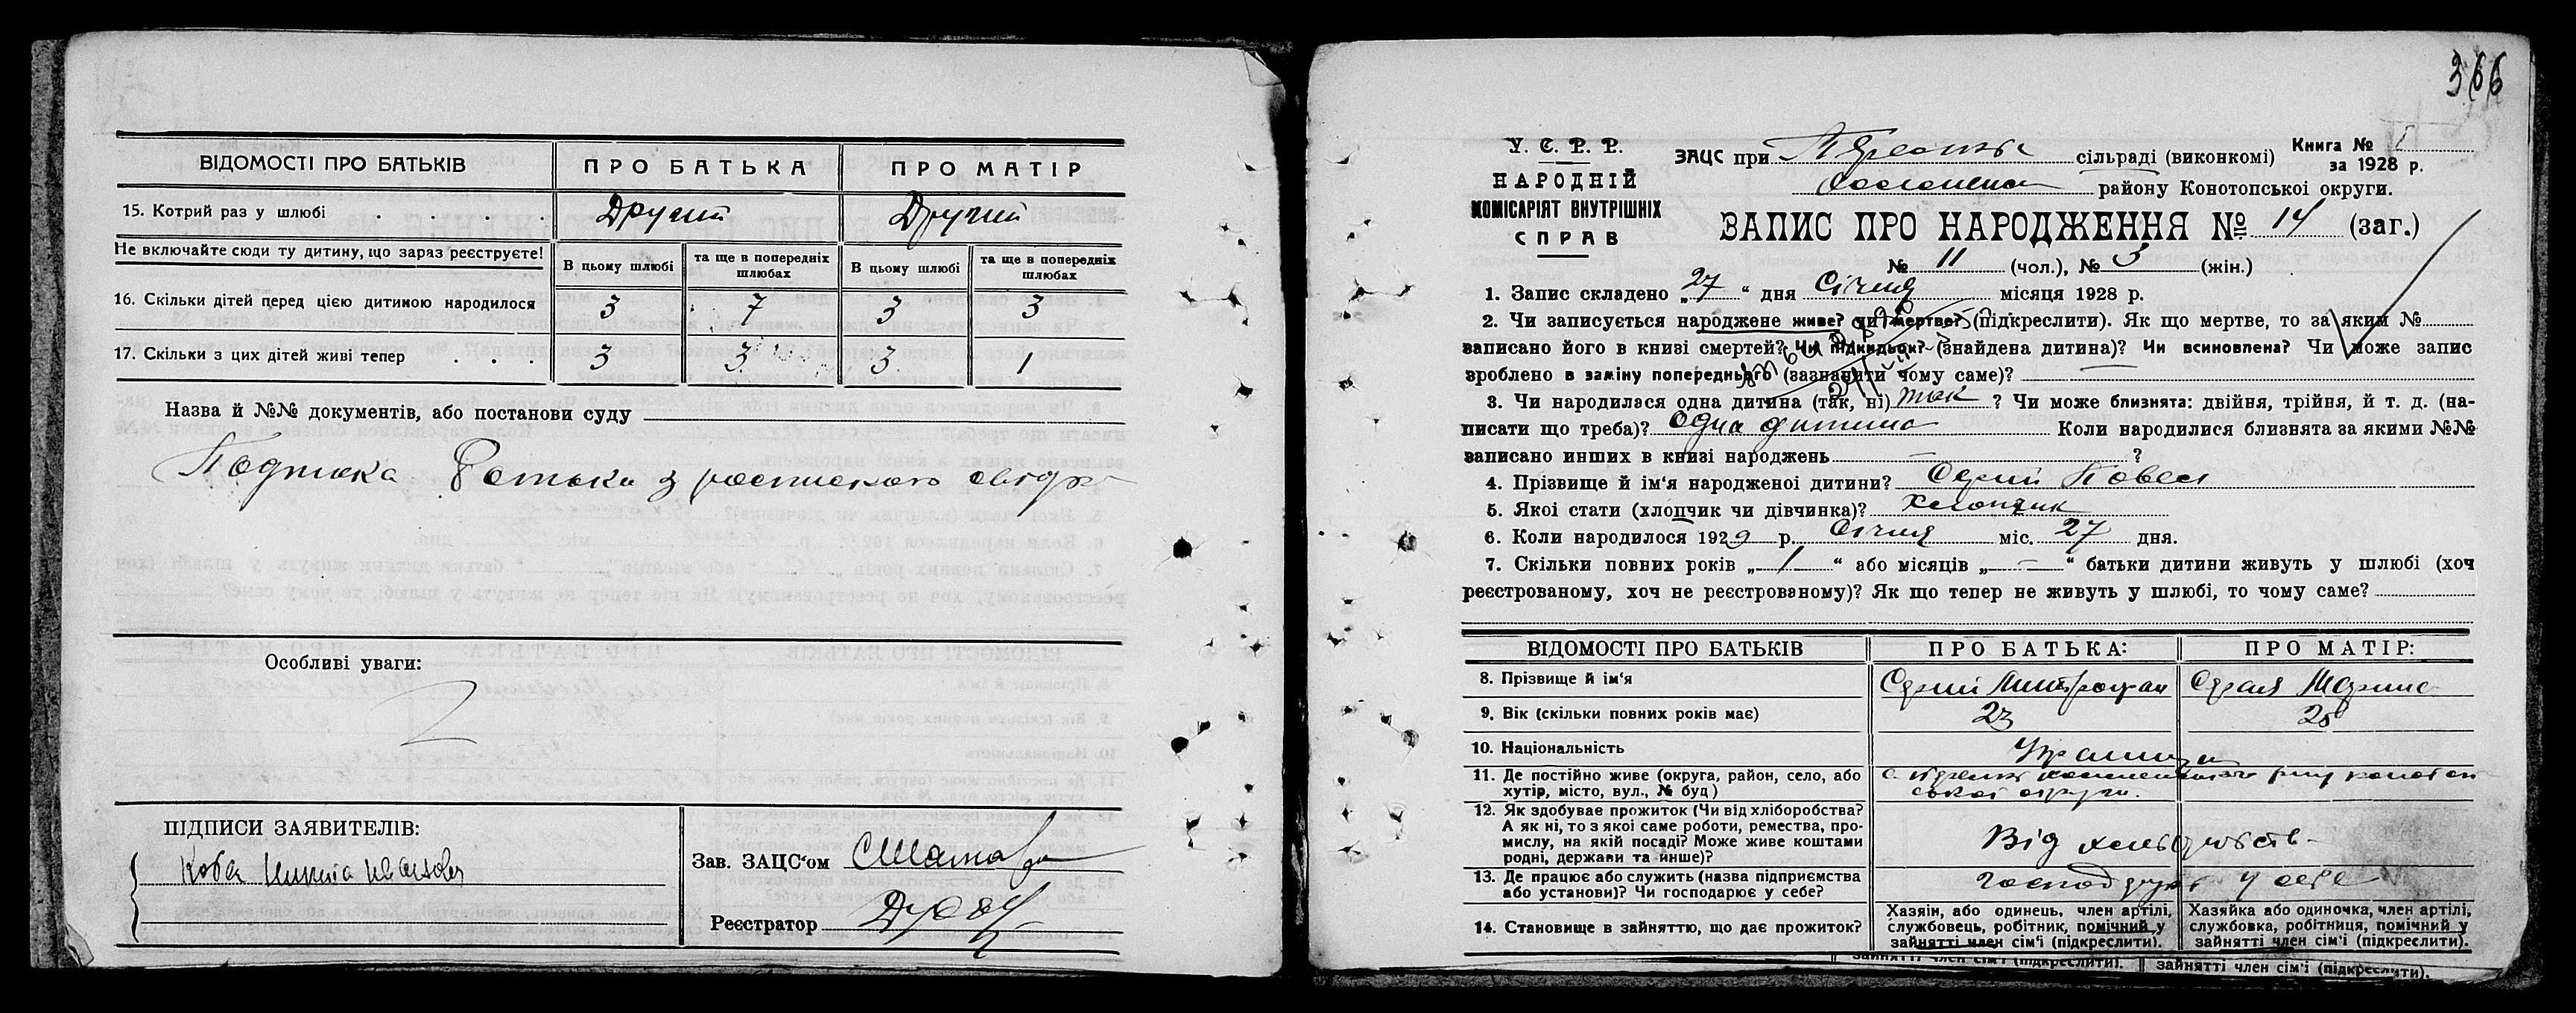 ВІДОМОСТІ ПРО БАТЬКІВ
ПРО БАТЬКА
ПРО МАТІР
15. Котрий раз у шлюбі . . . .
Другий
Другий
Не включайте сюди ту дитину, що зараз реєструєте!
В цьому шлюбі
та ще в попередніх шлюбах
В цьому шлюбі
та ще в попередніх шлюбах
16. Скільки дітей перед цією дитиною народилося
3
7
3
3
17. Скільки з цих дітей живі тепер . . .
3
3
3
1
Назва й №№ документів, або постанови суду
Батька з
Особливі уваги:
ПІДПИСИ ЗАЯВИТЕЛІВ:
Коба
Зав. ЗАЦС‘ом
Реєстратор
366
У. С. Р. Р.
НАРОДНІЙ
КОМІСАРІЯТ ВНУТРІШНІХ
СПРАВ
ЗАЦС при сільраді (виконкомі)
Книга № I
за 1928 р.
району Конотопської округи.
ЗАПИС ПРО НАРОДЖЕННЯ № 14 (заг.)
№ 11 (чол.), № 3 (жін.)
1. Запис складено „27“ дня Січня місяця 1928 р.
2. Чи записується народжене живе? чи мертве? (підкреслити). Як що мертве, то за яким №
записано його в книзі смертей? Чи підкидьок? (знайдена дитина)? Чи всиновлена? Чи може запис
зроблено в заміну попереднього (зазначити чому саме)?
3. Чи народилася одна дитина (так, ні) так ? Чи може близнята: двійня, трійня, й т. д. (на-
писати що треба)? Одна дитина Коли народилися близнята за якими №№
записано инших в книзі народжень — ?
4. Прізвище й ім‘я народженої дитини?
5. Якої стати (хлопчик чи дівчинка)? Хлопчик
6. Коли народилося 1929 р. Січня міс. 27 дня.
7. Скільки повних років „1“ або місяців „—“ батьки дитини живуть у шлюбі (хоч
реєстрованому, хоч не реєстрованому)? Як що тепер не живуть у шлюбі, то чому саме?
ВІДОМОСТІ ПРО БАТЬКІВ
ПРО БАТЬКА:
ПРО МАТІР:
8. Прізвище й ім‘я
9. Вік (скільки повних років має)
10. Національність
11. Де постійно живе (округа, район, село, або
хутір, місто, вул., № буд)
округи.
12. Як здобуває прожиток (Чи від хліборобства?
А як ні, то з якої саме роботи, ремества, про-
мислу, на якій посаді? Може живе коштами
родні, держави та инше)?
Від
13. Де працює або служить (назва підприємства
або установи)? Чи господарює у себе?
у себе
14. Становище в зайняттю, що дає прожиток?
Хазяін, або одинець, член артілі,
службовець, робітник, помічний у
зайнятті член сім‘ї (підкреслити).
Хазяйка або одиночка, член артілі,
службовка, робітниця, помічний у
зайнятті член сім‘ї (підкреслити).
зайнятті член сім‘ї (підкреслити).
зайнятті член сім‘ї (підкреслити).